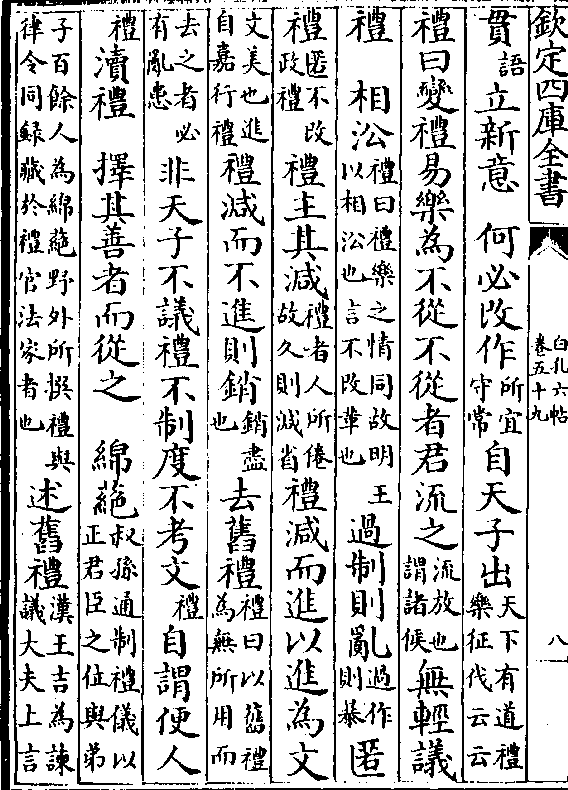 欽定四庫全書
白孔六帖
卷五十九
八
貫語立新意　何必改作所宜守常自天子出天下有道禮樂征伐云云
禮曰變禮易樂為不從不從者君流之流放也謂諸候無輕議
禮　相㳂禮曰禮樂之情同故明王以相㳂也言不改革也過制則亂過作則暴匿
禮匿不改政禮禮主其減禮者人所倦故久則減省禮減而進以進為文
文美也進自嘉行禮禮減而不進則銷銷盡也去舊禮禮曰以舊禮為無所用而
去之者必有亂患非天子不議禮不制度不考文禮自謂便人
禮瀆禮　擇其善者而從之　綿蕝叔孫通制禮儀以正君臣之位與弟
子百餘人為綿蕝野外所撰禮與律令同録藏於禮官法家者也述舊禮漢王吉為諫議大夫上言